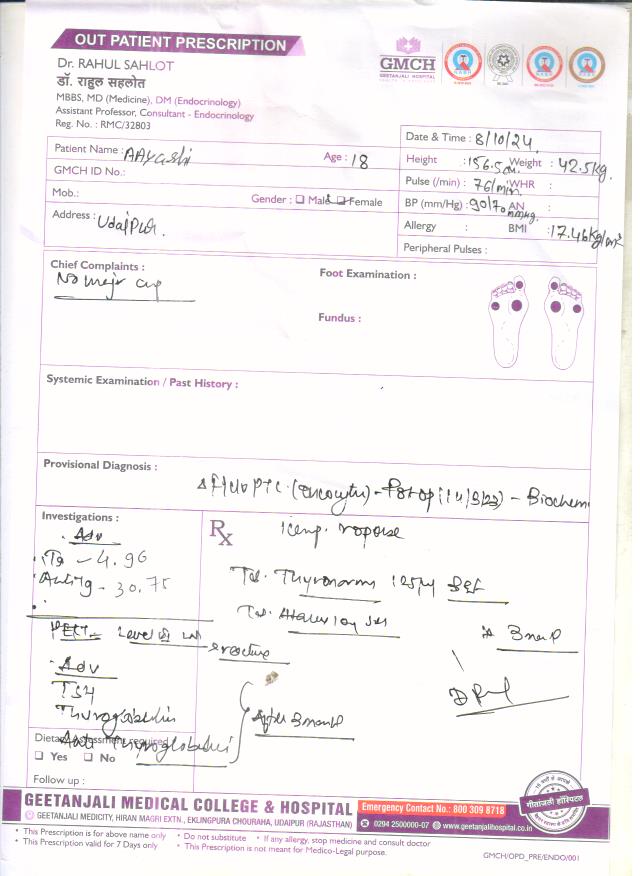 OUT PATIENT PRESCRIPTION
Dr. RAHUL SAHLOT
डॉ. राहुल सहलोत
MBBS, MD (Medicine), DM (Endocrinology)
Assistant Professor, Consultant - Endocrinology
Reg. No. : RMC/32803
GMCH
GEETANJALI HOSPITAL
Patient Name : AAyushi Age : 18
GMCH ID No.:
Mob.: Gender : Male Female
Address : Udaipur.
Date & Time : 8/10/24.
Height : 156.5cm Weight : 42.5kg.
Pulse (/min) : 76/min. WHR :
BP (mm/Hg) : 90/70 mmHg. AN :
Allergy : BMI : 17.46kg/m²
Peripheral Pulses :
Chief Complaints :
No major c/o
Foot Examination :
Fundus :
Systemic Examination / Past History :
Provisional Diagnosis :
PTC. - Postop - Biochem
Investigations :
Adv
Tg - 4.96
Anti Tg - 30.75
Rx
Tab. Thyronorm 125µg
Tab.
Adv
TSH
Thyroglobulin
Anti Thyroglobulin
After 3 month
Dietary Assessment required
Yes No
Follow up :
GEETANJALI MEDICAL COLLEGE & HOSPITAL
GEETANJALI MEDICITY, HIRAN MAGRI EXTN., EKLINGPURA CHOURAHA, UDAIPUR (RAJASTHAN)
Emergency Contact No.: 800 309 8718
0294 2500000-07 www.geetanjalihospital.co.in
गीतांजली हॉस्पिटल
• This Prescription is for above name only • Do not substitute • If any allergy, stop medicine and consult doctor
• This Prescription valid for 7 Days only • This Prescription is not meant for Medico-Legal purpose.
GMCH/OPD_PRE/ENDO/001